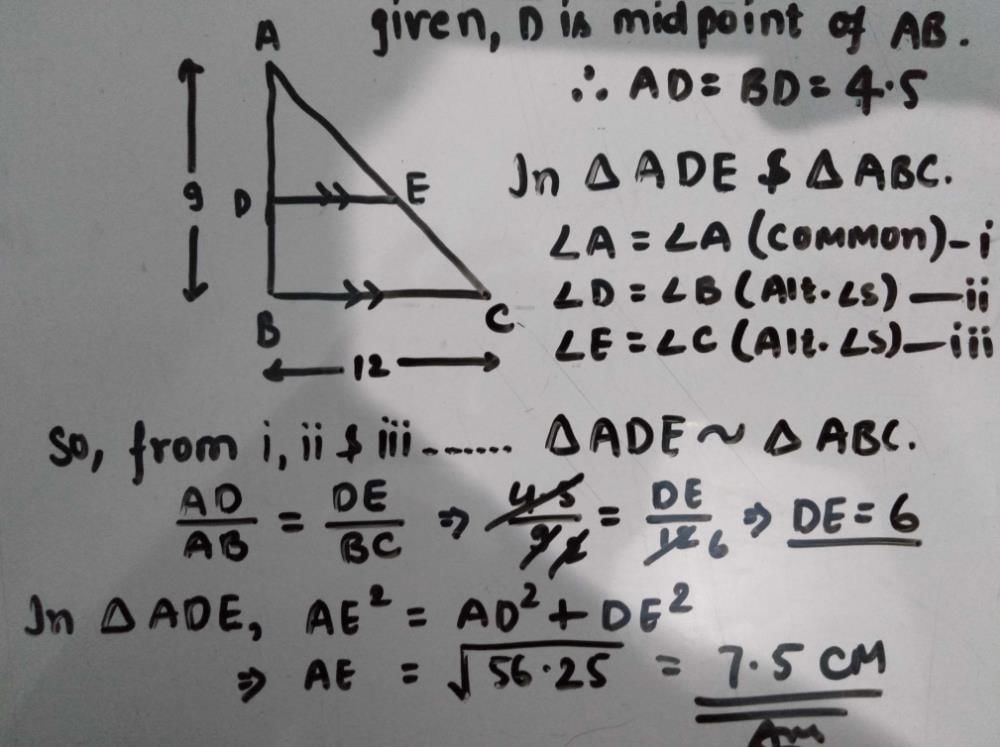 given, D is midpoint of AB.
∴ AD = BD = 4.5
A
9
D
E
B
C
12
In △ ADE & △ ABC.
∠A = ∠A (COMMON) - i
∠D = ∠B (Alt. ∠s) — ii
∠E = ∠C (Alt. ∠s) — iii
so, from i, ii & iii ....... △ ADE ~ △ ABC.
AD/AB = DE/BC ⇒ 4.5/9 2 = DE/12 6 ⇒ DE = 6
In △ ADE, AE² = AD² + DE²
⇒ AE = √56.25 = 7.5 CM
Ans